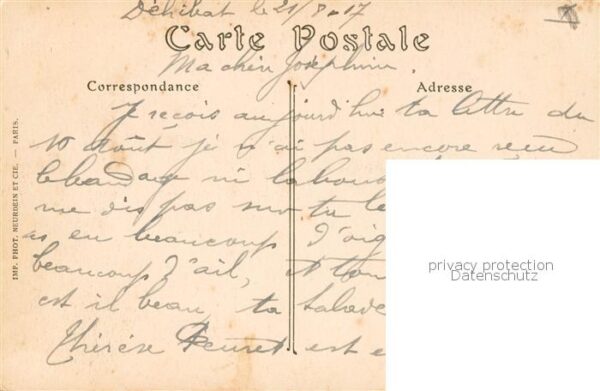 Déhibat le 21/8-17
Carte Postale
Ma chère Joséphine
Correspondance
Adresse
Je reçois aujourd'hui ta lettre du
10 Août je n'ai pas encore reçu
le ni la
me dis pas si tu le
as eu beaucoup d'oig
beaucoup d'ail, et ton
est il beau, ta salade
Thérèse est e
IMP. PHOT. NEURDEIN ET CIE. — PARIS.
privacy protection
Datenschutz